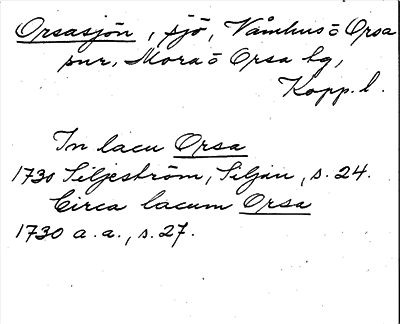 Orsasjön, sjö, Våmhus o Orsa
snr, Mora o Orsa tg,
Kopp. l.
In lacu Orsa
1730 Siljeström, Siljan, s. 24.
Circa lacum Orsa
1730 a. a., s. 27.